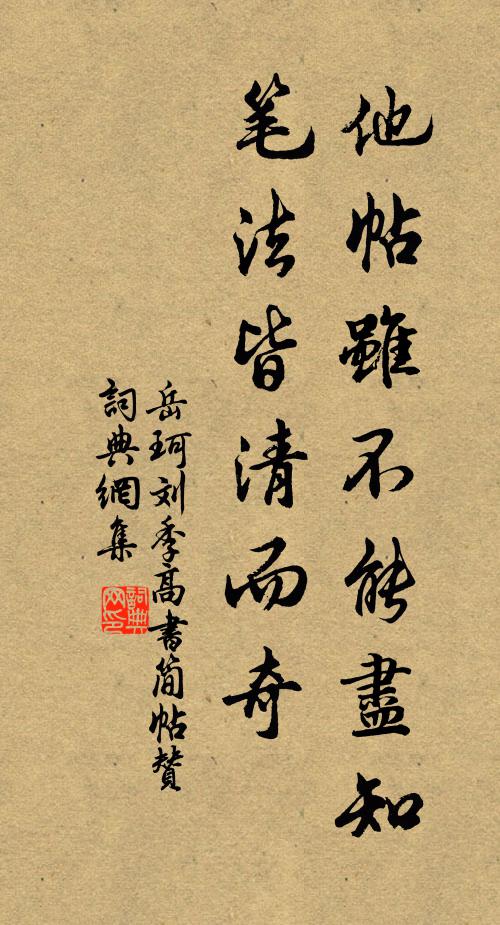 他帖雖不能盡知
笔法皆清而奇
岳珂刘季高書简帖赞
詞典網集
詞典
网印